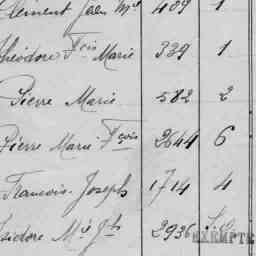 Clément Jean M^ie 409 1
Théodore F^cois Marie 339 1
Pierre Marie 582 2
Pierre Marie F^çois 2644 6
François-Joseph 1714 4
Isidore M^ie J^h 2936
EXEMPTÉ